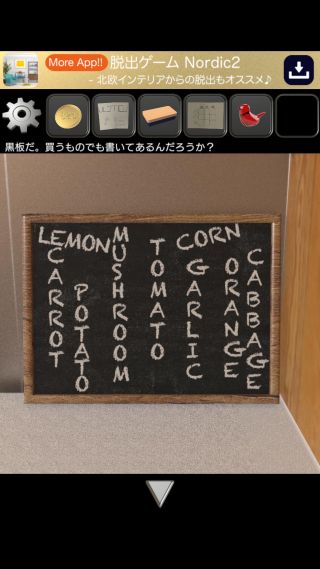 More App!! 脱出ゲーム Nordic2
- 北欧インテリアからの脱出もオススメ♪
黒板だ。買うものでも書いてあるんだろうか？
LEMON
CARROT
POTATO
MUSHROOM
TOMATO
CORN
GARLIC
ORANGE
CABBAGE